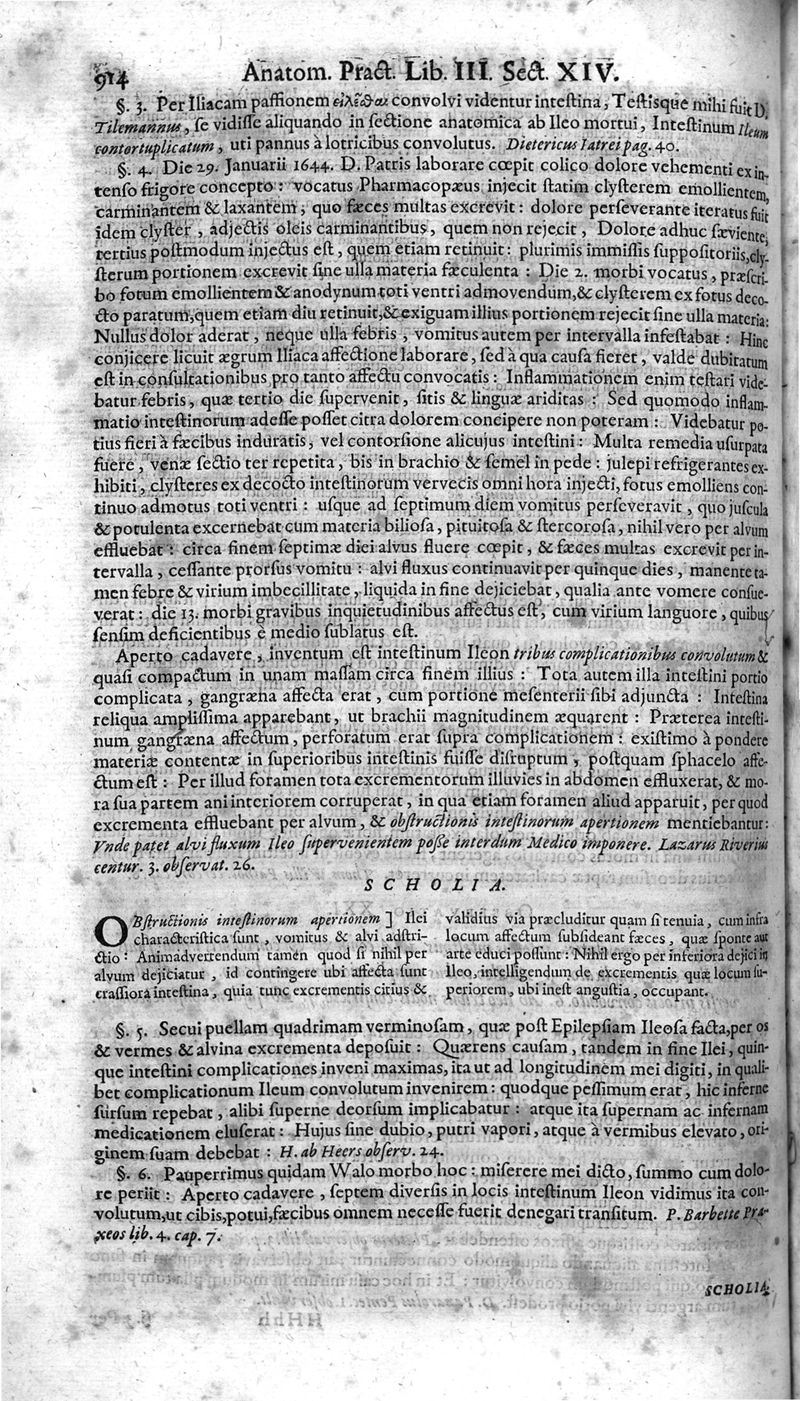 914 Anatom. Pract. Lib. III. Sect. XIV.
§. 3. Per Iliacam paſſionem εἰλεῖσθαι convolvi videntur inteſtina, Teſtisque mihi fuit D.
Tilemannus, ſe vidiſſe aliquando in ſectione anatomica ab Ileo mortui, Inteſtinum Ileum
contortuplicatum, uti pannus à lotricibus convolutus. Dietericus Iatrei pag. 40.
§. 4. Die 29. Januarii 1644. D. Patris laborare cœpit colico dolore vehementi ex in-
tenſo frigore concepto: vocatus Pharmacopæus injecit ſtatim clyſterem emollientem,
carminantem & laxantem, quo fæces multas excrevit: dolore perſeverante iteratus fuit
idem clyſter, adjectis oleis carminantibus, quem non rejecit, Dolore adhuc ſæviente,
tertius poſtmodum injectus eſt, quem etiam retinuit: plurimis immiſſis ſuppoſitoriis, cly-
ſterum portionem excrevit ſine ulla materia fæculenta: Die 2. morbi vocatus, præſcri-
bo fotum emollientem & anodynum toti ventri admovendum, & clyſterem ex fotus deco-
cto paratum, quem etiam diu retinuit, & exiguam illius portionem rejecit ſine ulla materia:
Nullus dolor aderat, neque ulla febris, vomitus autem per intervalla infeſtabat: Hinc
conjicere licuit ægrum Iliaca affectione laborare, ſed à qua cauſa fieret, valde dubitatum
eſt in conſultationibus pro tanto affectu convocatis: Inflammationem enim teſtari vide-
batur febris, quæ tertio die ſupervenit, ſitis & linguæ ariditas: Sed quomodo inflam-
matio inteſtinorum adeſſe poſſet citra dolorem concipere non poteram: Videbatur po-
tius fieri à fæcibus induratis, vel contorſione alicujus inteſtini: Multa remedia uſurpata
fuere, venæ ſectio ter repetita, bis in brachio & ſemel in pede: julepi refrigerantes ex-
hibiti, clyſteres ex decocto inteſtinorum vervecis omni hora injecti, fotus emolliens con-
tinuo admotus toti ventri: uſque ad ſeptimum diem vomitus perſeveravit, quo juſcula
& potulenta excernebat cum materia bilioſa, pituitoſa & ſtercoroſa, nihil vero per alvum
effluebat: circa finem ſeptimæ diei alvus fluere cœpit, & fæces multas excrevit per in-
tervalla, ceſſante prorſus vomitu: alvi fluxus continuavit per quinque dies, manente ta-
men febre & virium imbecillitate, liquida in fine dejiciebat, qualia ante vomere conſue-
verat: die 13. morbi gravibus inquietudinibus affectus eſt, cum virium languore, quibus
ſenſim deficientibus e medio ſublatus eſt.
Aperto cadavere, inventum eſt inteſtinum Ileon tribus complicationibus convolutum &
quaſi compactum in unam maſſam circa finem illius: Tota autem illa inteſtini portio
complicata, gangræna affecta erat, cum portione meſenterii ſibi adjuncta: Inteſtina
reliqua ampliſſima apparebant, ut brachii magnitudinem æquarent: Præterea inteſti-
num gangræna affectum, perforatum erat ſupra complicationem: exiſtimo à pondere
materiæ contentæ in ſuperioribus inteſtinis fuiſſe diſruptum, poſtquam ſphacelo affe-
ctum eſt: Per illud foramen tota excrementorum illuvies in abdomen effluxerat, & mo-
ra ſua partem ani interiorem corruperat, in qua etiam foramen aliud apparuit, per quod
excrementa effluebant per alvum, & obſtructionis inteſtinorum apertionem mentiebantur:
Vnde patet alvi fluxum Ileo ſupervenientem poſſe interdum Medico imponere. Lazarus Riverius
centur. 3. obſervat. 26.
SCHOLIA.
OBſtructionis inteſtinorum apertionem] Ilei
characteriſtica ſunt, vomitus & alvi adſtri-
ctio: Animadvertendum tamen quod ſi nihil per
alvum dejiciatur, id contingere ubi affecta ſunt
craſſiora inteſtina, quia tunc excrementis citius &
validius via præcluditur quam ſi tenuia, cum infra
locum affectum ſubſideant fæces, quæ ſponte aut
arte educi poſſunt: Nihil ergo per inferiora dejici in
Ileo, intelligendum de excrementis quæ locum ſu-
periorem, ubi ineſt anguſtia, occupant.
§. 5. Secui puellam quadrimam verminoſam, quæ poſt Epilepſiam Ileoſa facta, per os
& vermes & alvina excrementa depoſuit: Quærens cauſam, tandem in fine Ilei, quin-
que inteſtini complicationes inveni maximas, ita ut ad longitudinem mei digiti, in quali-
bet complicationum Ileum convolutum invenirem: quodque peſſimum erat, hic inferne
ſurſum repebat, alibi ſuperne deorſum implicabatur: atque ita ſupernam ac infernam
medicationem eluſerat: Hujus ſine dubio, putri vapori, atque à vermibus elevato, ori-
ginem ſuam debebat: H. ab Heers obſerv. 24.
§. 6. Pauperrimus quidam Walo morbo hoc: miſerere mei dicto, ſummo cum dolo-
re periit: Aperto cadavere, ſeptem diverſis in locis inteſtinum Ileon vidimus ita con-
volutum, ut cibis, potui, fæcibus omnem neceſſe fuerit denegari tranſitum. P. Barbette Pra-
xeos lib. 4. cap. 7.
SCHOLIA